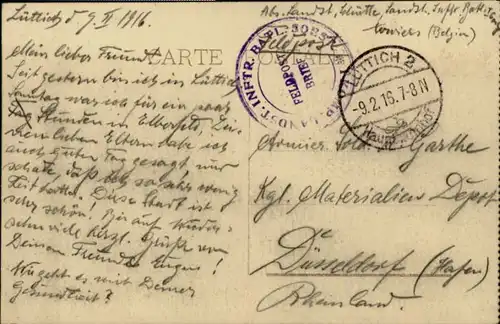 Lüttich d. 9. II 1916.
Mein lieber Freund
Seit gestern bin ich in Lüttich
Sonntag war ich für ein paar
Stunden in Elberfeld,
lieben Eltern habe ich
auch guten Tag gesagt, nur
schade, daß so sehr wenig
Zeit hatten. Diese Stadt ist
sehr schön! Bis auf Wieder-
sehn viele herzl. Grüße von
Deinem Freund Eugen!
Wie geht es mit Deiner
Gesundheit?
CARTE POSTALE
Abs. Landst. Schütte, Landst. Inftr. Batl.
(Belgien)
Feldpost
LANDST. INFTR. BATL.
FELDPOST
BRIEF
LÜTTICH 2
-9.2.16.7-8N
Armier. Sold. Garthe
Kgl. Materialien Depot
Düsseldorf (Hafen)
Rheinland.